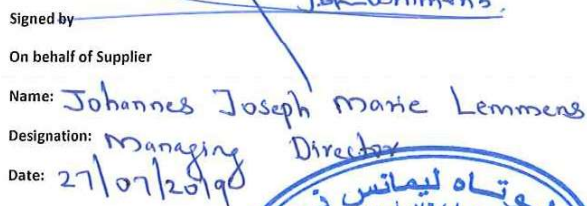 Signed by
On behalf of Supplier
Name: Johannes Joseph Marie Lemmens
Designation: Managing Director
Date: 27/07/2019
ليمانس